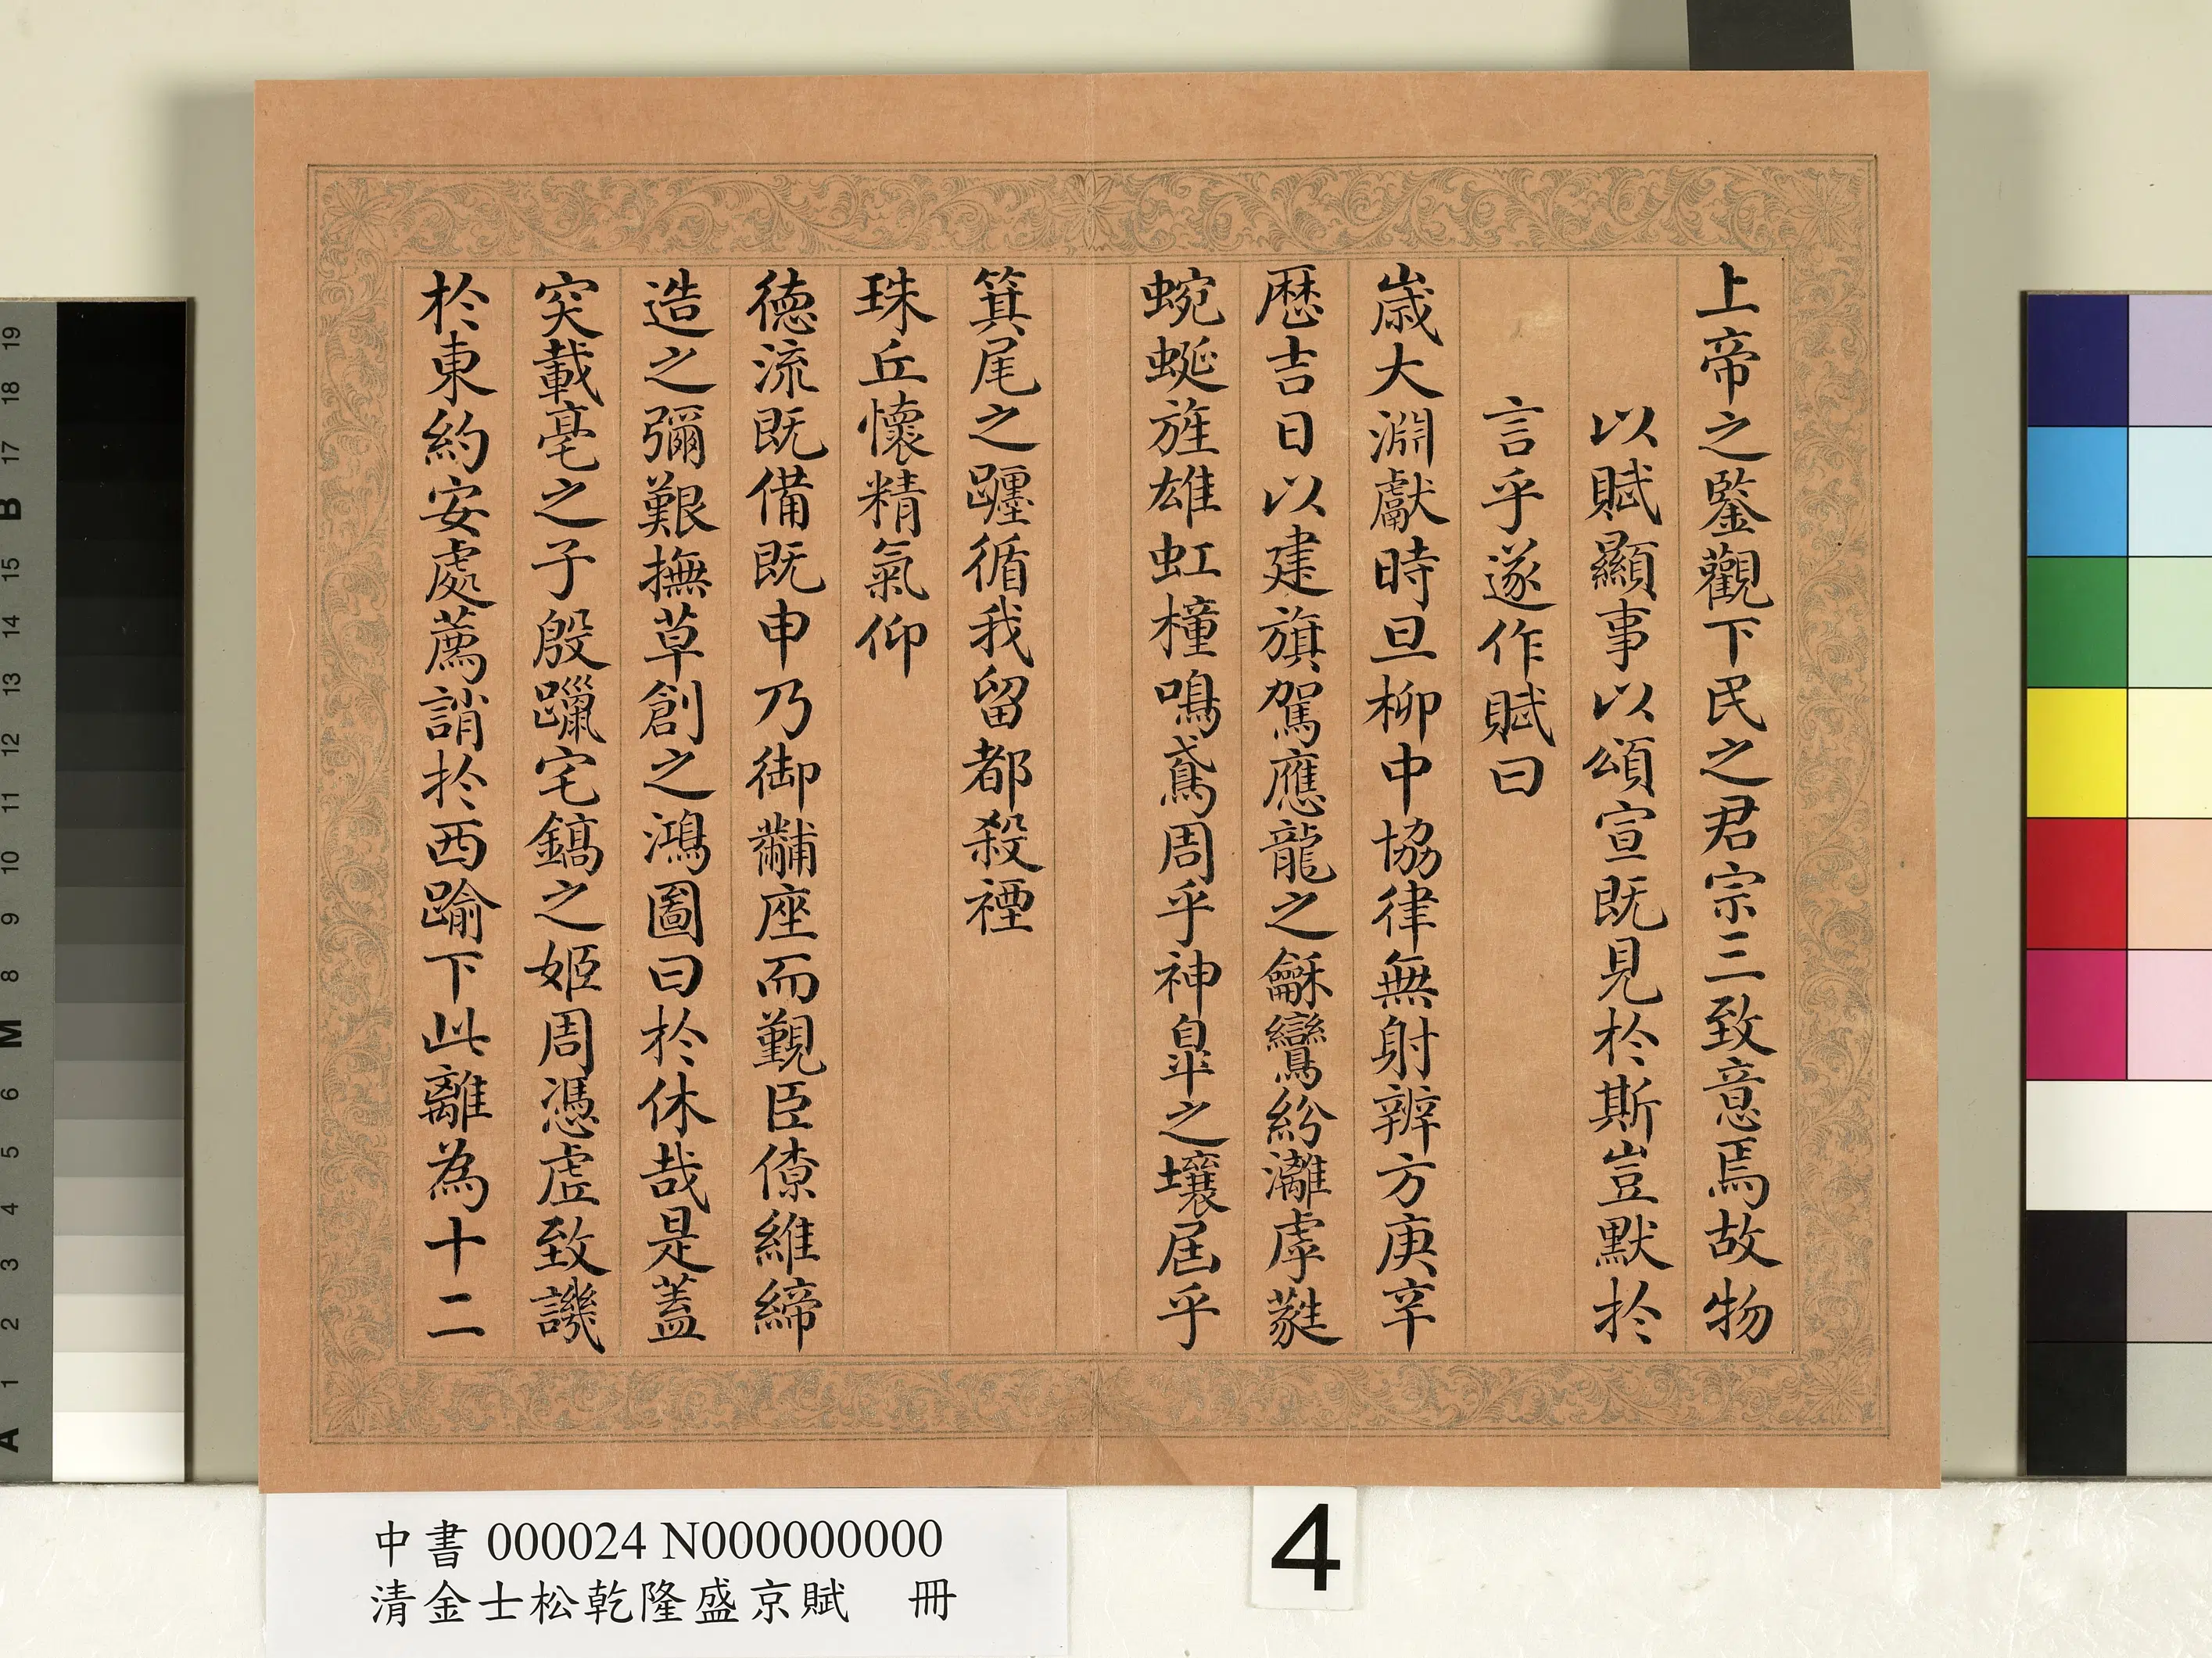 上帝之鍳觀下民之君宗三致意焉故物
以賦顯事以頌宣既見於斯豈默於
言乎遂作賦曰
歲大淵獻時旦柳中協律無射辨方庚辛
歷吉日以建旗駕應龍之龢鸞紛灕虖蕤
蜿蜒旌雄虹橦鳴鳶周乎神皐之壤屆乎
箕尾之躔循我留都殺禋
珠丘懷精氣仰
德流既備既申乃御黼座而覲臣僚維締
造之彌艱撫草創之鴻圖曰於休哉是蓋
突載亳之子殷躐宅鎬之姬周憑虛致譏
於東約安處薦誚於西踰下此離為十二
中書 000024 N000000000
清金士松乾隆盛京賦 冊
4
19
18
17
B
15
14
13
12
11
10
9
8
M
6
5
4
3
2
1
A